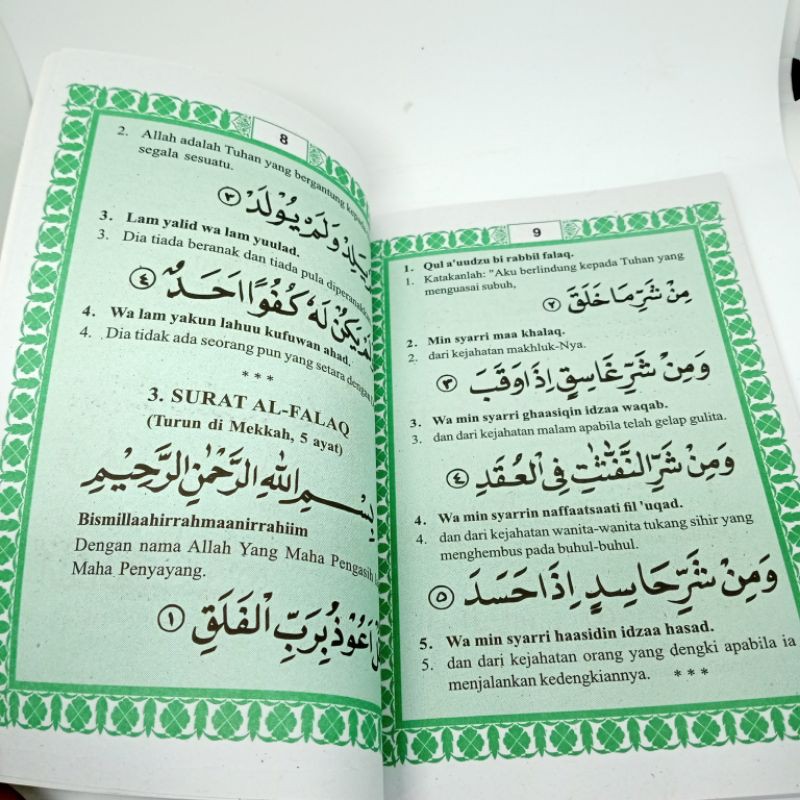 8
2. Allah adalah Tuhan yang bergantung kepada
segala sesuatu.
وَلَمْ يُوْلَدْ ٣
3. Lam yalid wa lam yuulad.
3. Dia tiada beranak dan tiada pula diperanakkan
يَكُنْ لَهُ كُفُوًا اَحَدٌ ٤
4. Wa lam yakun lahuu kufuwan ahad.
4. Dia tidak ada seorang pun yang setara dengan
* * *
3. SURAT AL-FALAQ
(Turun di Mekkah, 5 ayat)
بِسْمِ اللهِ الرَّحْمٰنِ الرَّحِيْمِ
Bismillaahirrahmaanirrahiim
Dengan nama Allah Yang Maha Pengasih
Maha Penyayang.
اَعُوْذُ بِرَبِّ الْفَلَقِ ١
9
1. Qul a'uudzu bi rabbil falaq.
1. Katakanlah: "Aku berlindung kepada Tuhan yang
menguasai subuh,
مِنْ شَرِّ مَا خَلَقَ ٢
2. Min syarri maa khalaq.
2. dari kejahatan makhluk-Nya.
وَمِنْ شَرِّ غَاسِقٍ اِذَا وَقَبَ ٣
3. Wa min syarri ghaasiqin idzaa waqab.
3. dan dari kejahatan malam apabila telah gelap gulita.
وَمِنْ شَرِّ النَّفّٰثٰتِ فِى الْعُقَدِ ٤
4. Wa min syarrin naffaatsaati fil 'uqad.
4. dan dari kejahatan wanita-wanita tukang sihir yang
menghembus pada buhul-buhul.
وَمِنْ شَرِّ حَاسِدٍ اِذَا حَسَدَ ٥
5. Wa min syarri haasidin idzaa hasad.
5. dan dari kejahatan orang yang dengki apabila ia
menjalankan kedengkiannya. * * *